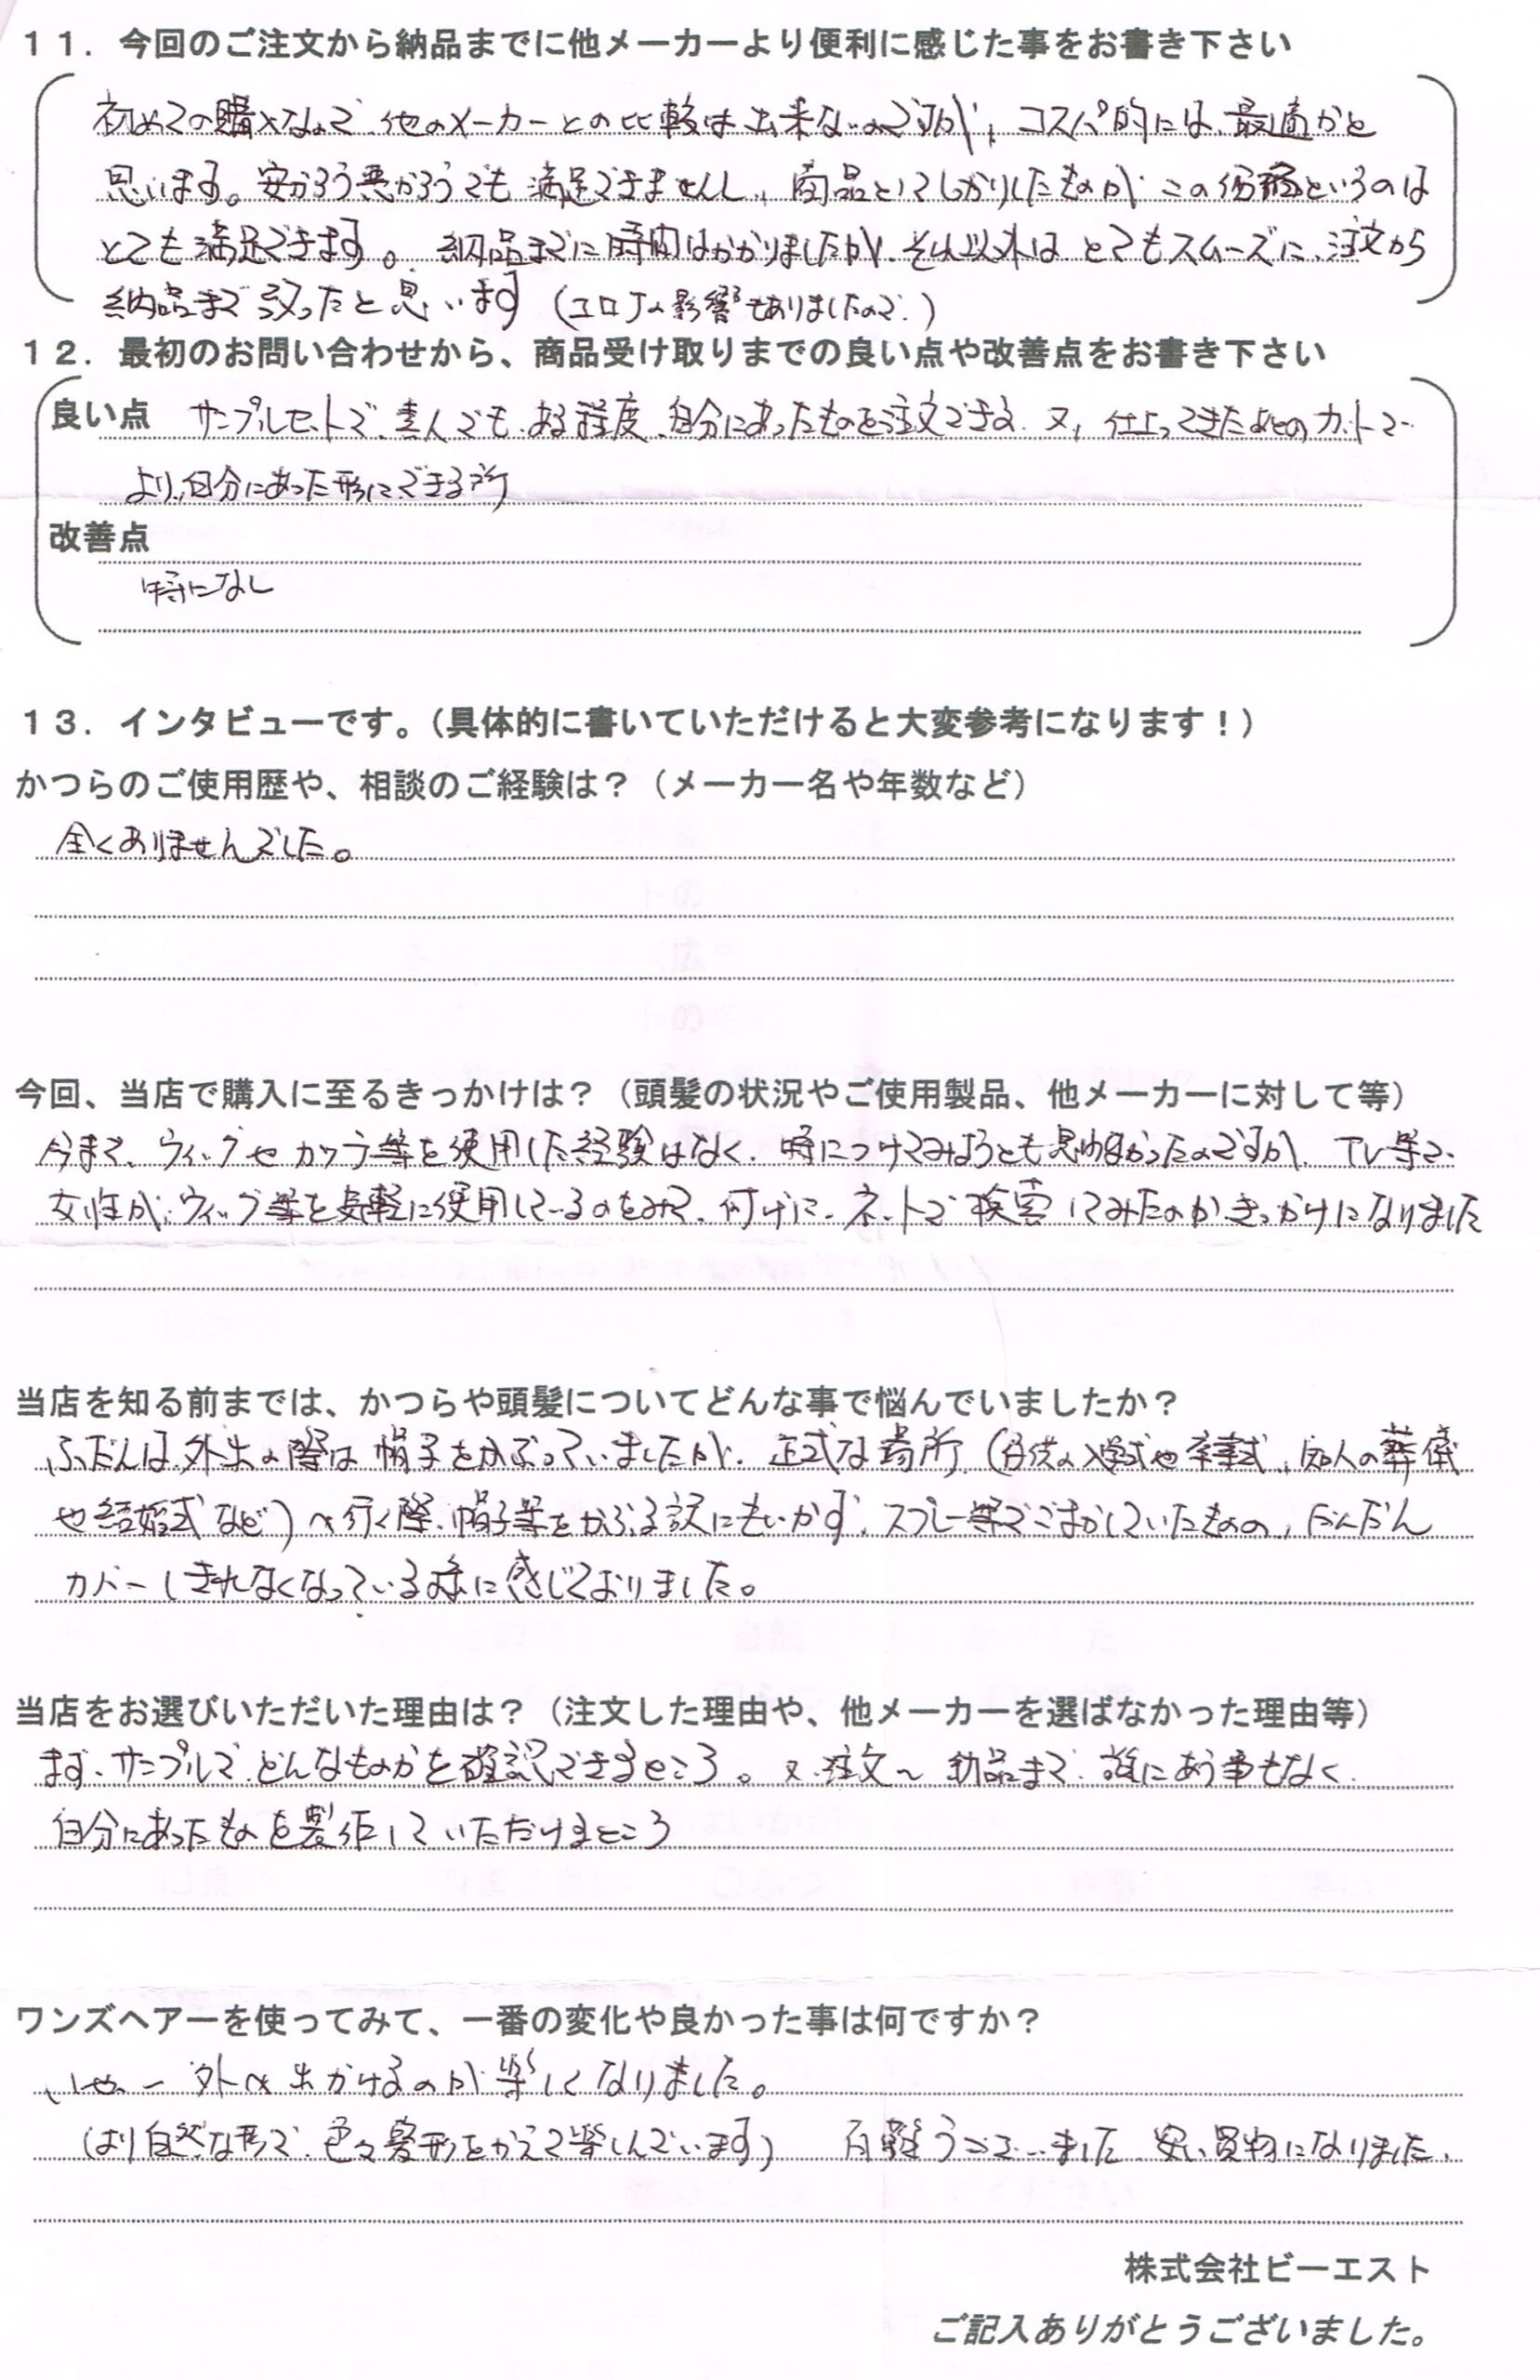 １１．今回のご注文から納品までに他メーカーより便利に感じた事をお書き下さい
初めての購入なので、他のメーカーとの比較は出来ないのですが、コスパ的には、最適かと
思います。安かろう悪かろうでも満足できませんし、商品としてしっかりしたものが、この価格というのは
とても満足できます。納品までに時間はかかりましたが、それ以外は とてもスムーズに、注文から
納品まで 至ったと思います（コロナの影響もありましたので、）
１２．最初のお問い合わせから、商品受け取りまでの良い点や改善点をお書き下さい
良い点 サンプルセットで、素人でも、ある程度、自分にあったものを注文できる 又、仕上ってきたあとのカットで
より、自分にあった形にできる所
改善点
特になし
１３．インタビューです。（具体的に書いていただけると大変参考になります！）
かつらのご使用歴や、相談のご経験は？（メーカー名や年数など）
全くありませんでした。
今回、当店で購入に至るきっかけは？（頭髪の状況やご使用製品、他メーカーに対して等）
今まで、ウィッグやカツラ等を使用した経験はなく、特につけてみようとも思わなかったのですが、TV等で、
女性が、ウィッグ等を気軽に使用しているのをみて、何げに、ネットで検索してみたのがきっかけになりました
当店を知る前までは、かつらや頭髪についてどんな事で悩んでいましたか？
ふだんは、外出の際は 帽子をかぶっていましたが、正式な場所（子供の入学式や卒業式、知人の葬儀
や結婚式など）へ行く際、帽子等をかぶる訳にもいかず、スプレー等でごまかしていたものの、だんだん
カバーしきれなくなっている様に感じておりました。
当店をお選びいただいた理由は？（注文した理由や、他メーカーを選ばなかった理由等）
まず、サンプルで、どんなものかを確認できるところ。又、注文〜納品まで、誰にあう事もなく、
自分にあったものを製作していただけるところ
ワンズヘアーを使ってみて、一番の変化や良かった事は何ですか？
いやー 外へ出かけるのが 楽しくなりました。
（より自然な形で、色々髪形をかえて楽しんでいます） 安い買物になりました、
株式会社ビーエスト
ご記入ありがとうございました。